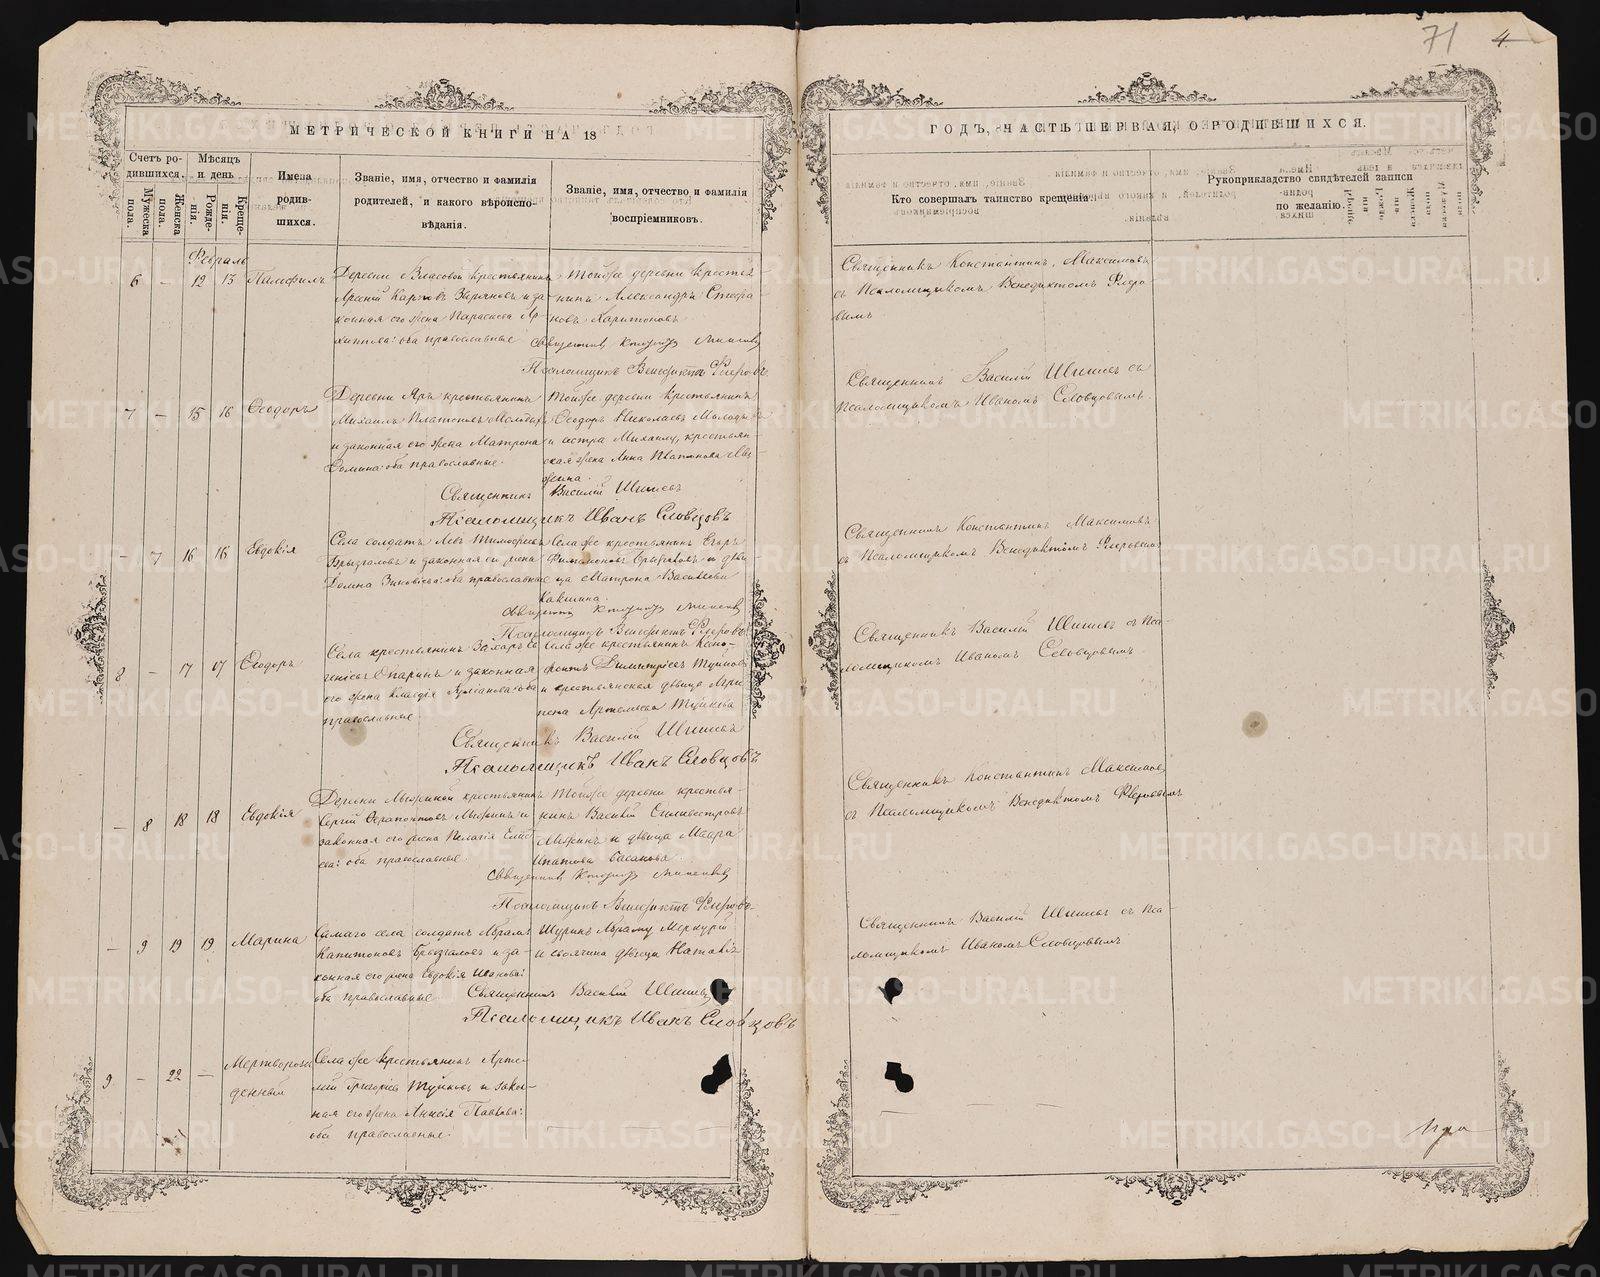 71 4
МЕТРИЧЕСКОЙ КНИГИ НА 18
ГОДЪ, ЧАСТЬ ПЕРВАЯ, О РОДИВШИХСЯ.
Счетъ ро-
дившихся.
Мужеска
пола.
Женска
пола.
Мѣсяцъ
и день
Рожде-
нія.
Креще-
нія.
Имена
родив-
шихся.
Званіе, имя, отчество и фамилія
родителей, и какого вѣроиспо-
вѣданія.
Званіе, имя, отчество и фамилія
воспріемниковъ.
Кто совершалъ таинство крещенія.
Рукоприкладство свидѣтелей записи
по желанію.
Февраль
6 — 12 13
Деревни Власовой крестьянинъ
Карповъ и за-
конная его жена Параскева Ар-
хипова: оба православные
Тойже деревни крестья-
нинъ Александръ Стефа-
новъ Харитоновъ
Псаломщикъ Венедиктъ Флеровъ
Священникъ Константинъ Максимовъ
съ Псаломщикомъ Венедиктомъ Флеро-
вымъ
7 — 15 16 Ѳеодоръ
Деревни Яръ крестьянинъ
Михаилъ Платоновъ
и законная его жена Матрона
Фомина: оба православные.
Тойже деревни крестьянинъ
Ѳеодоръ Николаевъ
и сестра Михаилу, крестьян-
ская жена Анна Платонова
Священникъ Василій Шишевъ
Псаломщикъ Иванъ Словцовъ
Священникъ Василій Шишевъ съ
Псаломщикомъ Иваномъ Словцовымъ.
— 7 16 16 Евдокія
Села солдатъ Левъ Тимофеевъ
Брызгаловъ и законная его жена
Домна Зиновіева: оба православные
Села же крестьянинъ Егоръ
Филимоновъ и дѣви-
ца Матрона Васильева
Псаломщикъ Венедиктъ Флеровъ
Священникъ Константинъ Максимовъ
съ Псаломщикомъ Венедиктомъ Флеровымъ
8 — 17 17 Ѳеодоръ
Села крестьянинъ Захаръ Ев-
геніевъ Опаринъ и законная
его жена Клавдія оба
православные
Села же крестьянинъ Ксено-
фонтъ Димитріевъ
и крестьянская дѣвица Агри-
пена Артемьева
Священникъ Василій Шишевъ
Псаломщикъ Иванъ Словцовъ
Священникъ Василій Шишевъ съ Пса-
ломщикомъ Иваномъ Словцовымъ
— 8 18 18 Евдокія
Деревни крестьянинъ
Сергій и
законная его жена Пелагія Елисе-
ева: оба православные
Тойже деревни крестья-
нинъ Василій Сильвестровъ
и дѣвица Мавра
Ипатова
Псаломщикъ Венедиктъ Флеровъ
Священникъ Константинъ Максимовъ
съ Псаломщикомъ Венедиктомъ Флеровымъ
— 9 19 19 Марина
Самаго села солдатъ Абрамъ
Капитоновъ Брызгаловъ и за-
конная его жена Евдокія Иванова:
оба православные
Шуринъ Абраму Меркурій
и своячина дѣвица Наталія
Священникъ Василій Шишевъ
Псаломщикъ Иванъ Словцовъ
Священникъ Василій Шишевъ съ Пса-
ломщикомъ Иваномъ Словцовымъ
9 — 22 — Мертворож-
денный
Села же крестьянинъ Арте-
мій Григорьевъ и закон-
ная его жена Анисія Павлова:
оба православные.
METRIKI.GASO-URAL.RU